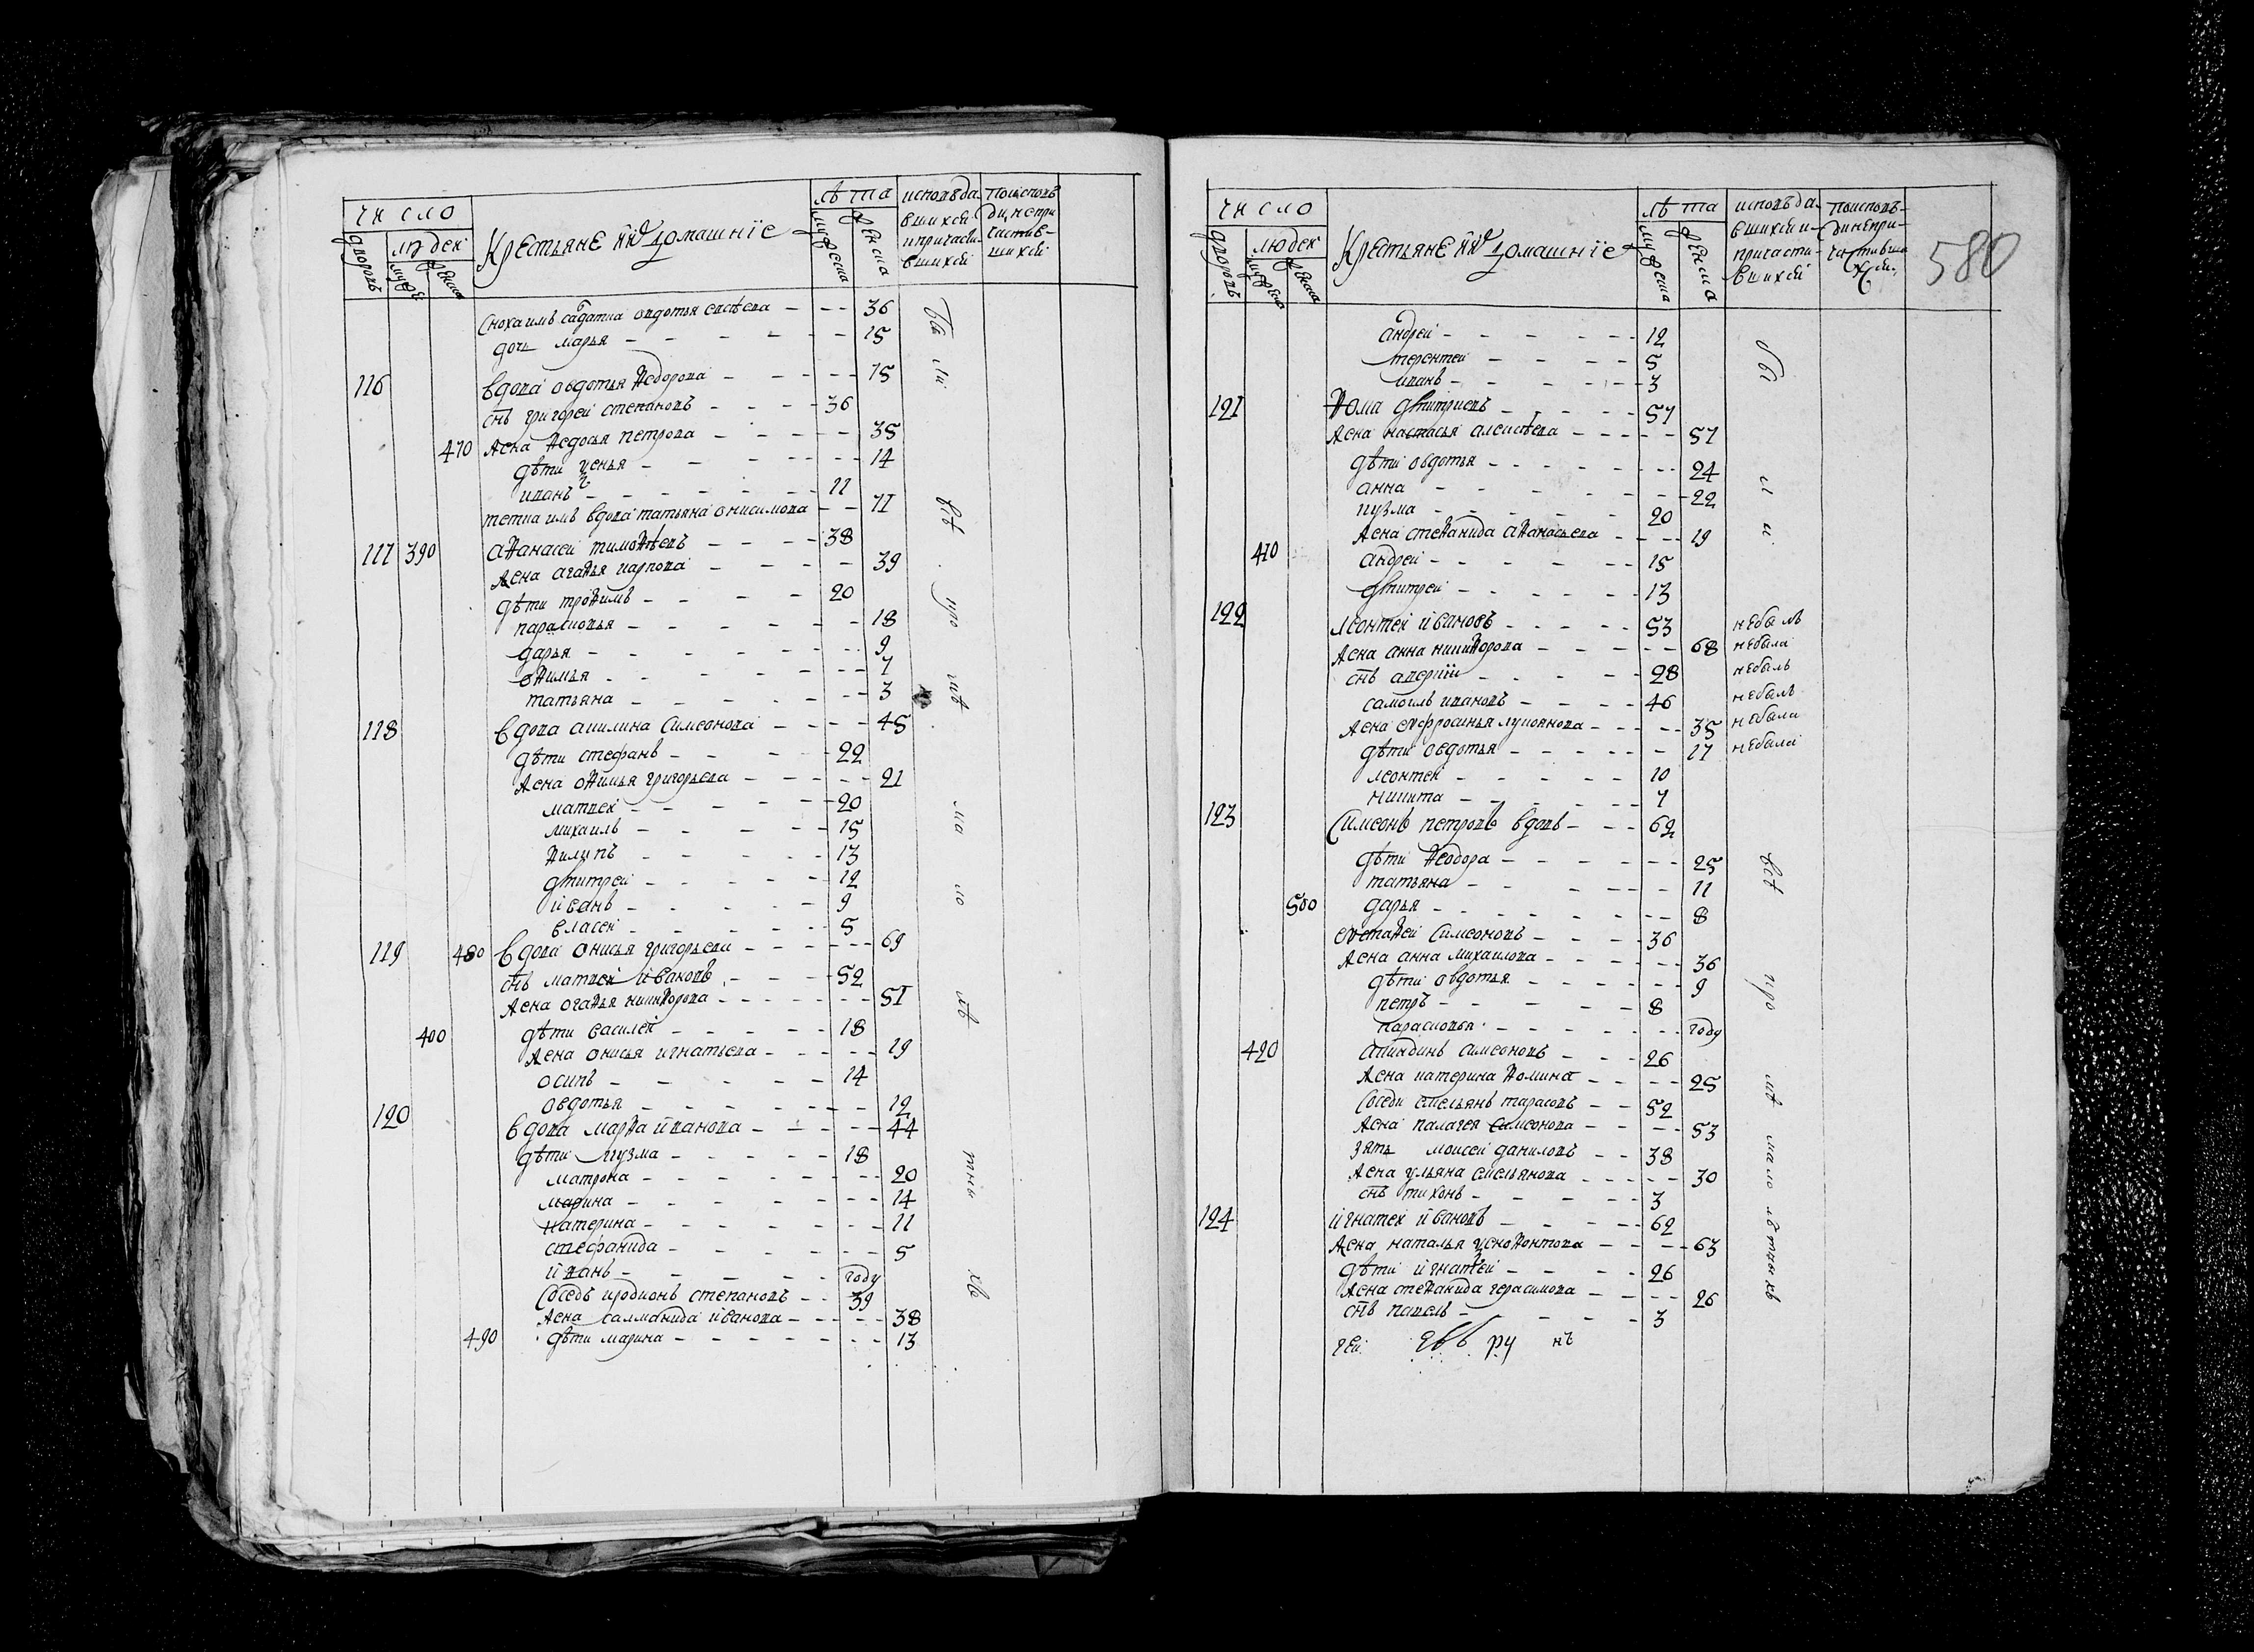 число
дворовъ
людей
муже
женска
Крестьяне и их домашніе
лѣта
мужеска
женска
исповѣда
вшихся
и причасти
вшихся
по исповѣ
ди непри
частив-
шихся
Сноха имъ салдатка овдотья евсѣева - - - 36
дочь марья - - - 15
116 вдова овдотья Ѳедорова - - - 75
снъ григореи степановъ - - - 36
470 жена Ѳедосья петрова - - - 35
дѣти ксенья - - - 14
иванъ - - - 11
тетка имъ вдова татьяна онисимова - - 71
117 390 аѲанасеи тимоѲѣевъ - - - 38
жена агаѲья карпова - - - 39
дѣти троѲимъ - - - 20
парасковья - - - 18
дарья - - - 9
оѲимья - - - 7
татьяна - - - 3
118 вдова акилина Симеонова - - - 45
дѣти стефанъ - - - 22
жена оѲимья григорьева - - - 21
матвеи - - - 20
михаилъ - - - 15
Ѳилипъ - - - 13
дмитреи - - - 12
иванъ - - - 9
власеи - - - 5
119 480 вдова онисья григорьева - - - 69
снъ матвеи ивановъ - - - 52
жена огаѲья никиѲорова - - - 51
400 дѣти василеи - - - 18
жена онисья игнатьева - - - 19
осипъ - - - 14
овдотья - - - 12
120 вдова марѲа иванова - - - 44
дѣти кузма - - - 18
матрона - - - 20
марина - - - 14
катерина - - - 11
стефанида - - - 5
иванъ - - - году
Соседъ иродионъ степановъ - - 39
жена салманида иванова - - - 38
490 дѣти марина - - - 13
бы ли
всѣ
кро
мѣ
ма
ло
лѣ
тны
хъ
число
дворовъ
людей
мужеска
женска
Крестьяне и их домашніе
лѣта
мужеска
женска
исповѣда
вшихся и
причасти
вшихся
по исповѣ-
ди непри-
частивши
хся
580
андреи - - - 12
терентеи - - - 5
иванъ - - - 3
121 Ѳома дмитриевъ - - - 57
жена настасья алексѣева - - - 57
дѣти овдотья - - - 24
анна - - - 22
кузма - - - 20
жена стеѲанида аѲанасьева - - - 19
410 андреи - - - 15
дмитреи - - - 13
122 леонтеи ивановъ - - - 53 небылъ
жена анна никиѲорова - - - 68 небыла
снъ аверкии - - - 28 небылъ
самоилъ ивановъ - - - 46 небылъ
жена еуфросинья лукоянова - - - 35 небыла
дѣти овдотья - - - 17 небыла
леонтеи - - - 10
никита - - - 7
123 Симеонъ петровъ вдовъ - - - 62
дѣти Ѳеодора - - - 25
татьяна - - - 11
500 дарья - - - 8
еустаѲеи Симеоновъ - - - 36
жена анна михаилова - - - 36
дѣти овдотья - - - 9
петръ - - - 8
парасковья - - - году
420 акиндинъ симеоновъ - - - 26
жена катерина Ѳомина - - - 25
Соседи емельянъ тарасовъ - - 52
жена палагея симеонова - - - 53
зять моисеи даниловъ - - - 38
жена ульяна емельянова - - - 30
снъ тихонъ - - - 3
124 игнатеи ивановъ - - - 62
жена наталья ксеноѲонтова - - - 63
дѣти игнатеи - - - 26
жена стеѲанида герасимова - - - 26
снъ павелъ - - - 3
бы
л и
всѣ
кро
мѣ
мало
лѣтныхъ